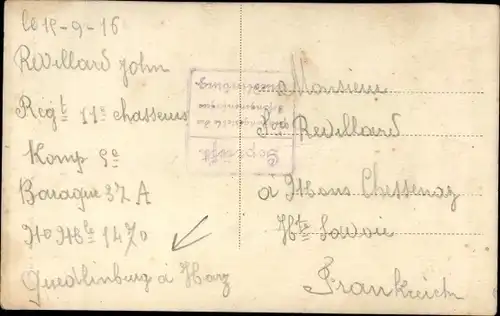 le 15-9-16
Revillard john
Reg^t 11^e chasseurs
Komp 5^e
Baraque 37 A
N^o M^le 1470
Quedlinburg a Harz
Geprüft
Quedlinburg
a Monsieur
Revillard
à Mons Chessenaz
H^te Savoie
Frankreich